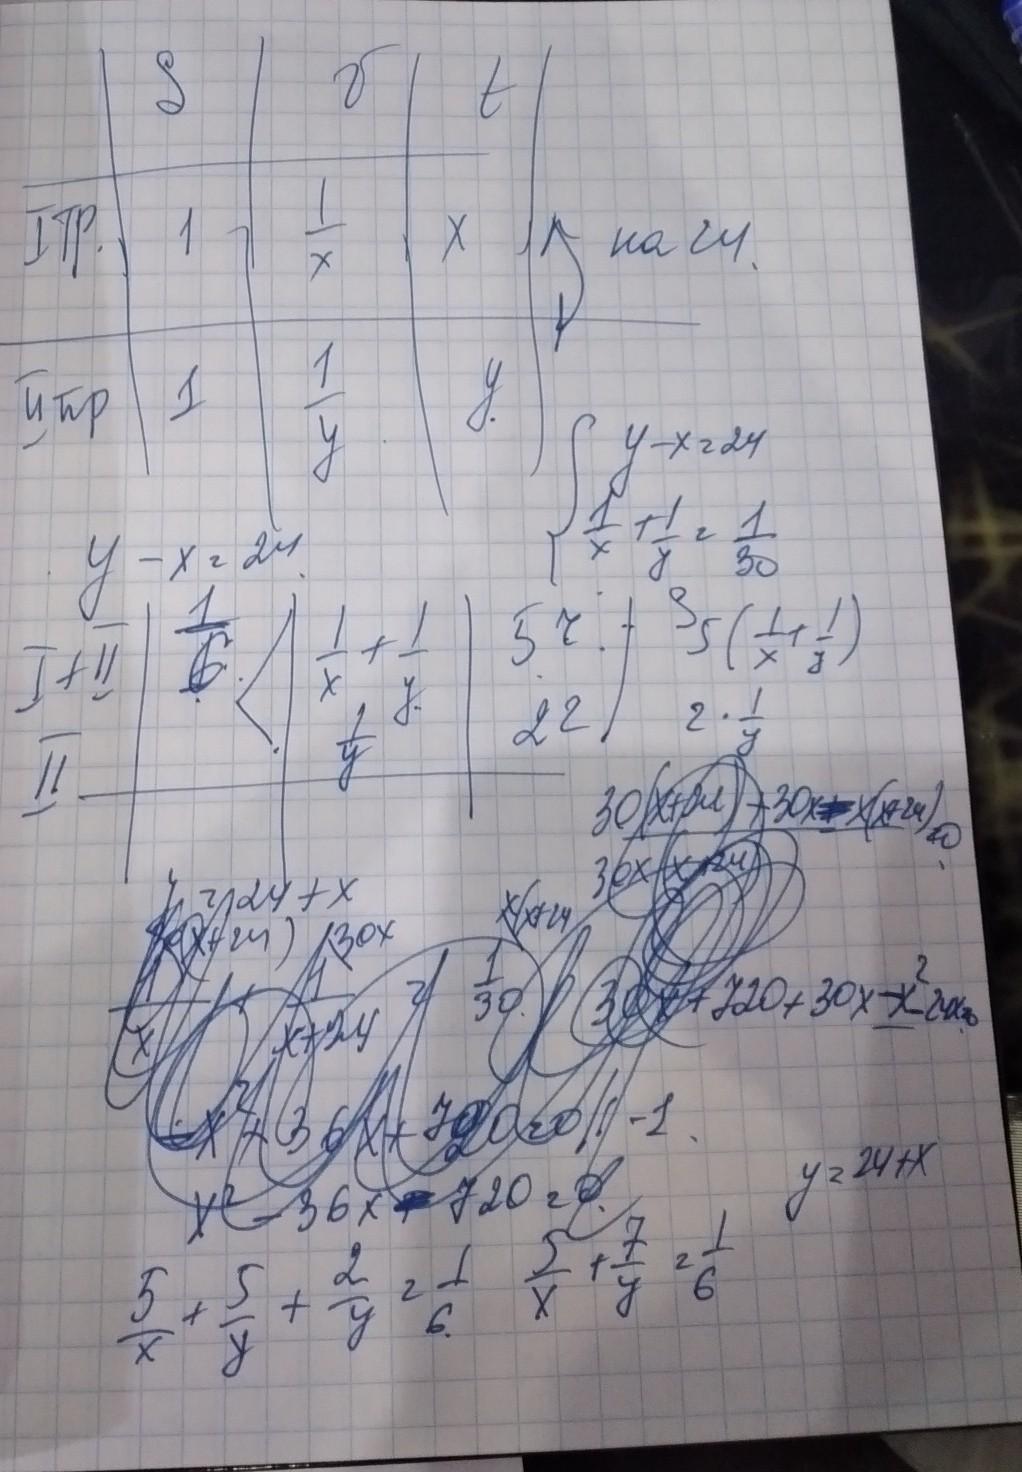 S v t
I тр. 1 1/x x на 24.
II тр 1 1/y y.
y - x = 24
1/x + 1/y = 1/30
y - x = 24.
I + II 1/6 1/x + 1/y 5 ч. 5(1/x + 1/y)
II 1/y 2 ч 2 · 1/y
30(x+24) + 30x - x(x+24) = 0
30x · x+24
y = 24 + x
(x+24) 30x x(x+24
1/x + 1/(x+24) = 1/30
30x + 720 + 30x - x² - 24x = 0
-x² + 36x + 720 = 0 | · -1.
x² - 36x - 720 = 0.
y = 24 + x
5/x + 5/y + 2/y = 1/6. 5/x + 7/y = 1/6